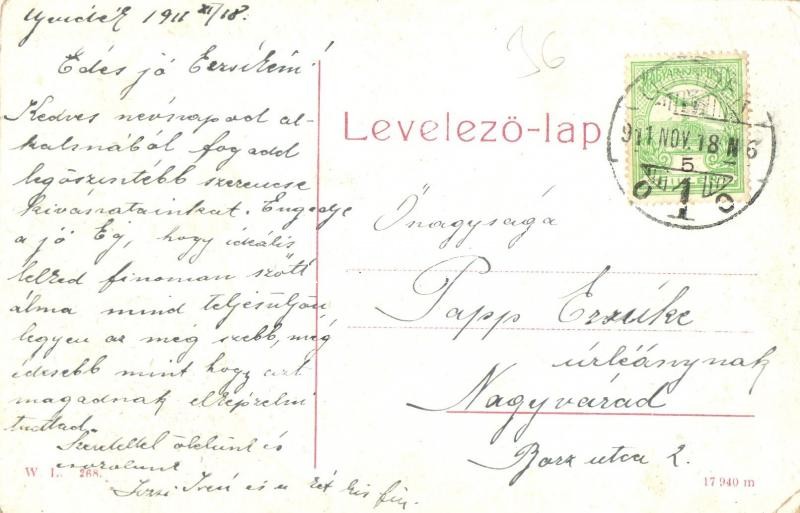 1911 XI/18.
Édes jó Erzsikém!
Kedves névnapod al-
kalmából fogadd
legőszintébb szerencse
kivánatainkat. Engedje
a jó Ég, hogy ideális
lelked finoman szőtt
álma mind teljesüljön
legyen az még szebb, még
édesebb mint hogy azt
magadnak elképzelni
tudtad.
Szeretettel ölelünk és
csókolunk
Irén és a két kis fiú
W. L. 268.
36
Levelező-lap
MAGYAR KIR. POSTA
5
911 NOV. 18 N 6
1
Őnagysága
Papp Erzsike
úrleánynak
Nagyvárad
Borz utca 2.
17 940 m